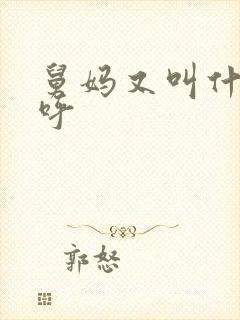 舅妈又叫什
呼
郭怒